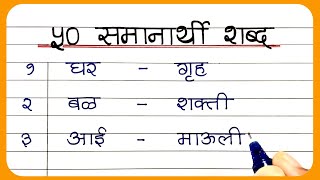 ५० समानार्थी शब्द
१ घर - गृह
२ बळ - शक्ती
३ आई - माऊली